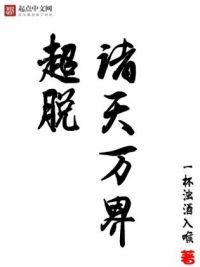 起点中文网
诸天万界
超脱
一杯浊酒入喉
著